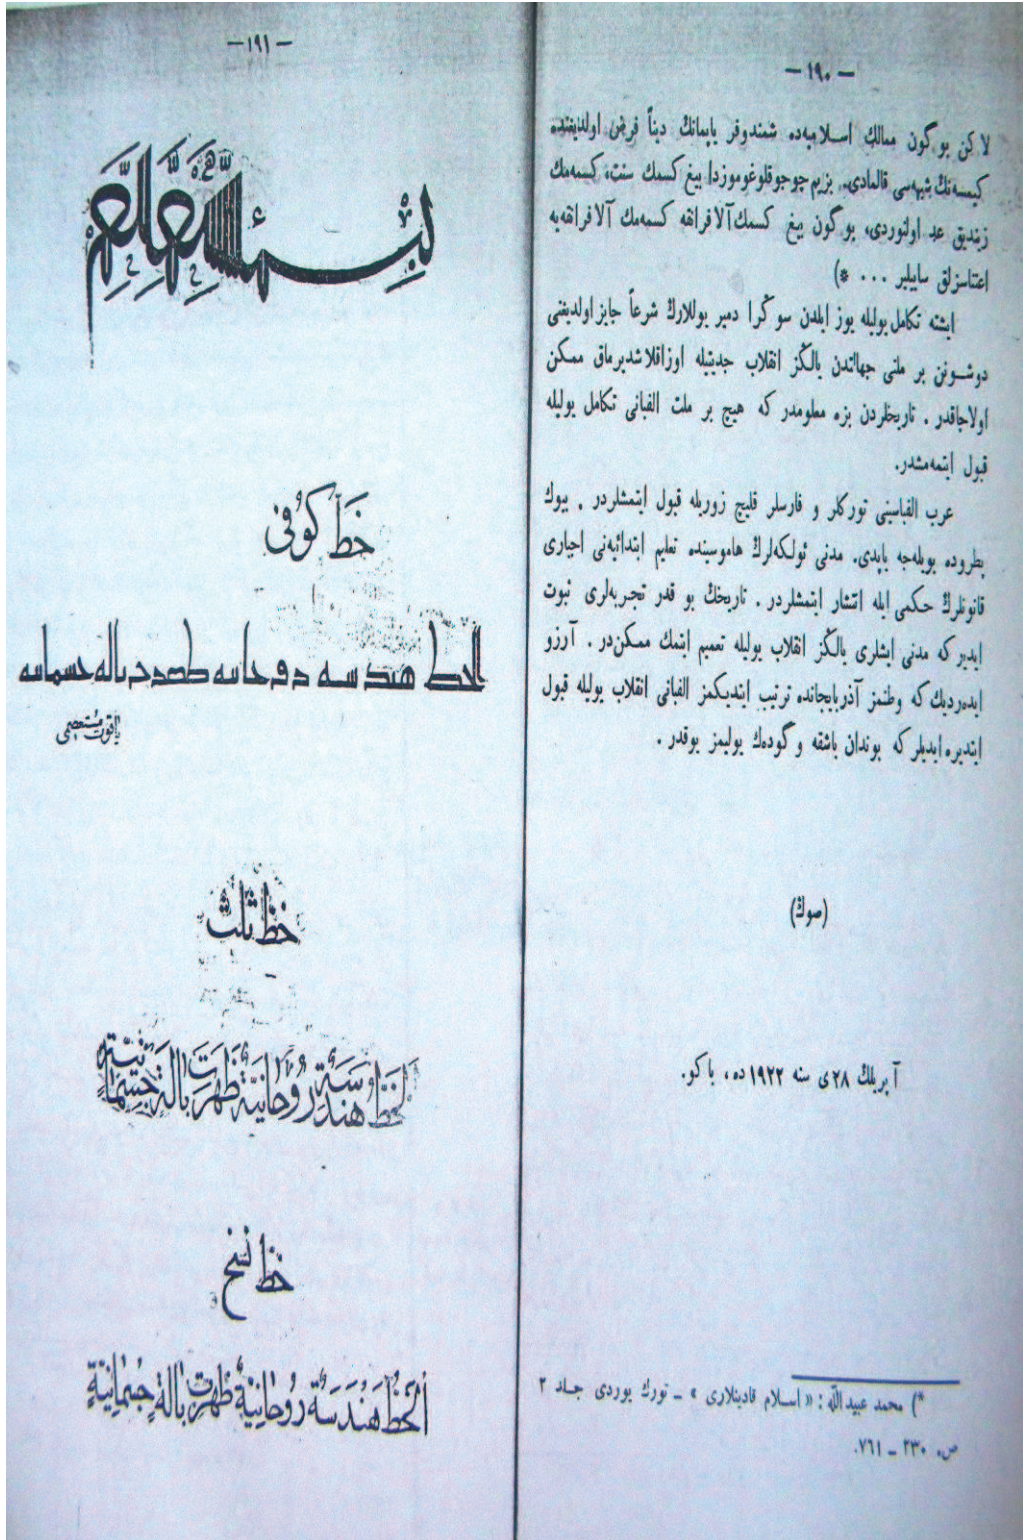 — ١٩٠ —
لاكن بو گون ممالك اسلاميه‌ده شمندوفر ياپمانك ديناً فرض اولديغنده
كيمسه‌نك شبهه‌سى قالمادى. بزيم چوجوقلوغوموزدا بيغ كسمك سنت، كسمه‌مك
زنديق عد اولنوردى، بو گون بيغ كسمك آلافرانقه كسمه‌مك آلافرانقه‌يه
اعتناسزلق ساييلير ... *)
ايشته تكامل يوليله يوز ايلدن سوڭرا دمير يوللارڭ شرعاً جايز اولديغنى
دوشونن بر ملتى جهالتدن يالڭز انقلاب جديتيله اوزاقلاشديرماق ممكن
اولاجاقدر. تاريخلردن بزه معلومدر كه هيچ بر ملت الفبانى تكامل يوليله
قبول ايتمه‌مشدر.
عرب الفباسينى توركلر و فارسلر قليج زوريله قبول ايتمشلردر. بيوك
پطروده بويله‌جه ياپدى. مدنى ئولكه‌لرڭ هاموسينده تعليم ابتدائيه‌نى اجبارى
قانونلرڭ حكمى ايله انتشار ايتمشلردر. تاريخڭ بو قدر تجربه‌لرى ثبوت
ايدير كه مدنى ايشلرى يالڭز انقلاب يوليله تعميم ايتمك ممكن‌در. آرزو
ايده‌رديك كه وطنمز آذربايجانده ترتيب ايتديكمز الفبانى انقلاب يوليله قبول
ايتديره ايديلر كه بوندان باشقه و گوده‌ك يوليمز يوقدر.
(صوڭ)
آپريلڭ ٢٨ى سنه ١٩٢٢ده، باكو.
*) محمد عبيدالله: «اسلام قادينلارى» ـ تورك يوردى جلد ٢
ص. ٢٣٠ ـ ٧٦١.
— ١٩١ —
خط كوفى
الخط هندسه روحانيه ظهرت باله جسمانيه
ياقوت مستعصمى
خط ثلث
الخط هندسة روحانية ظهرت بالة جسمانية
خط نسخ
الخط هندسة روحانية ظهرت بالة جسمانية